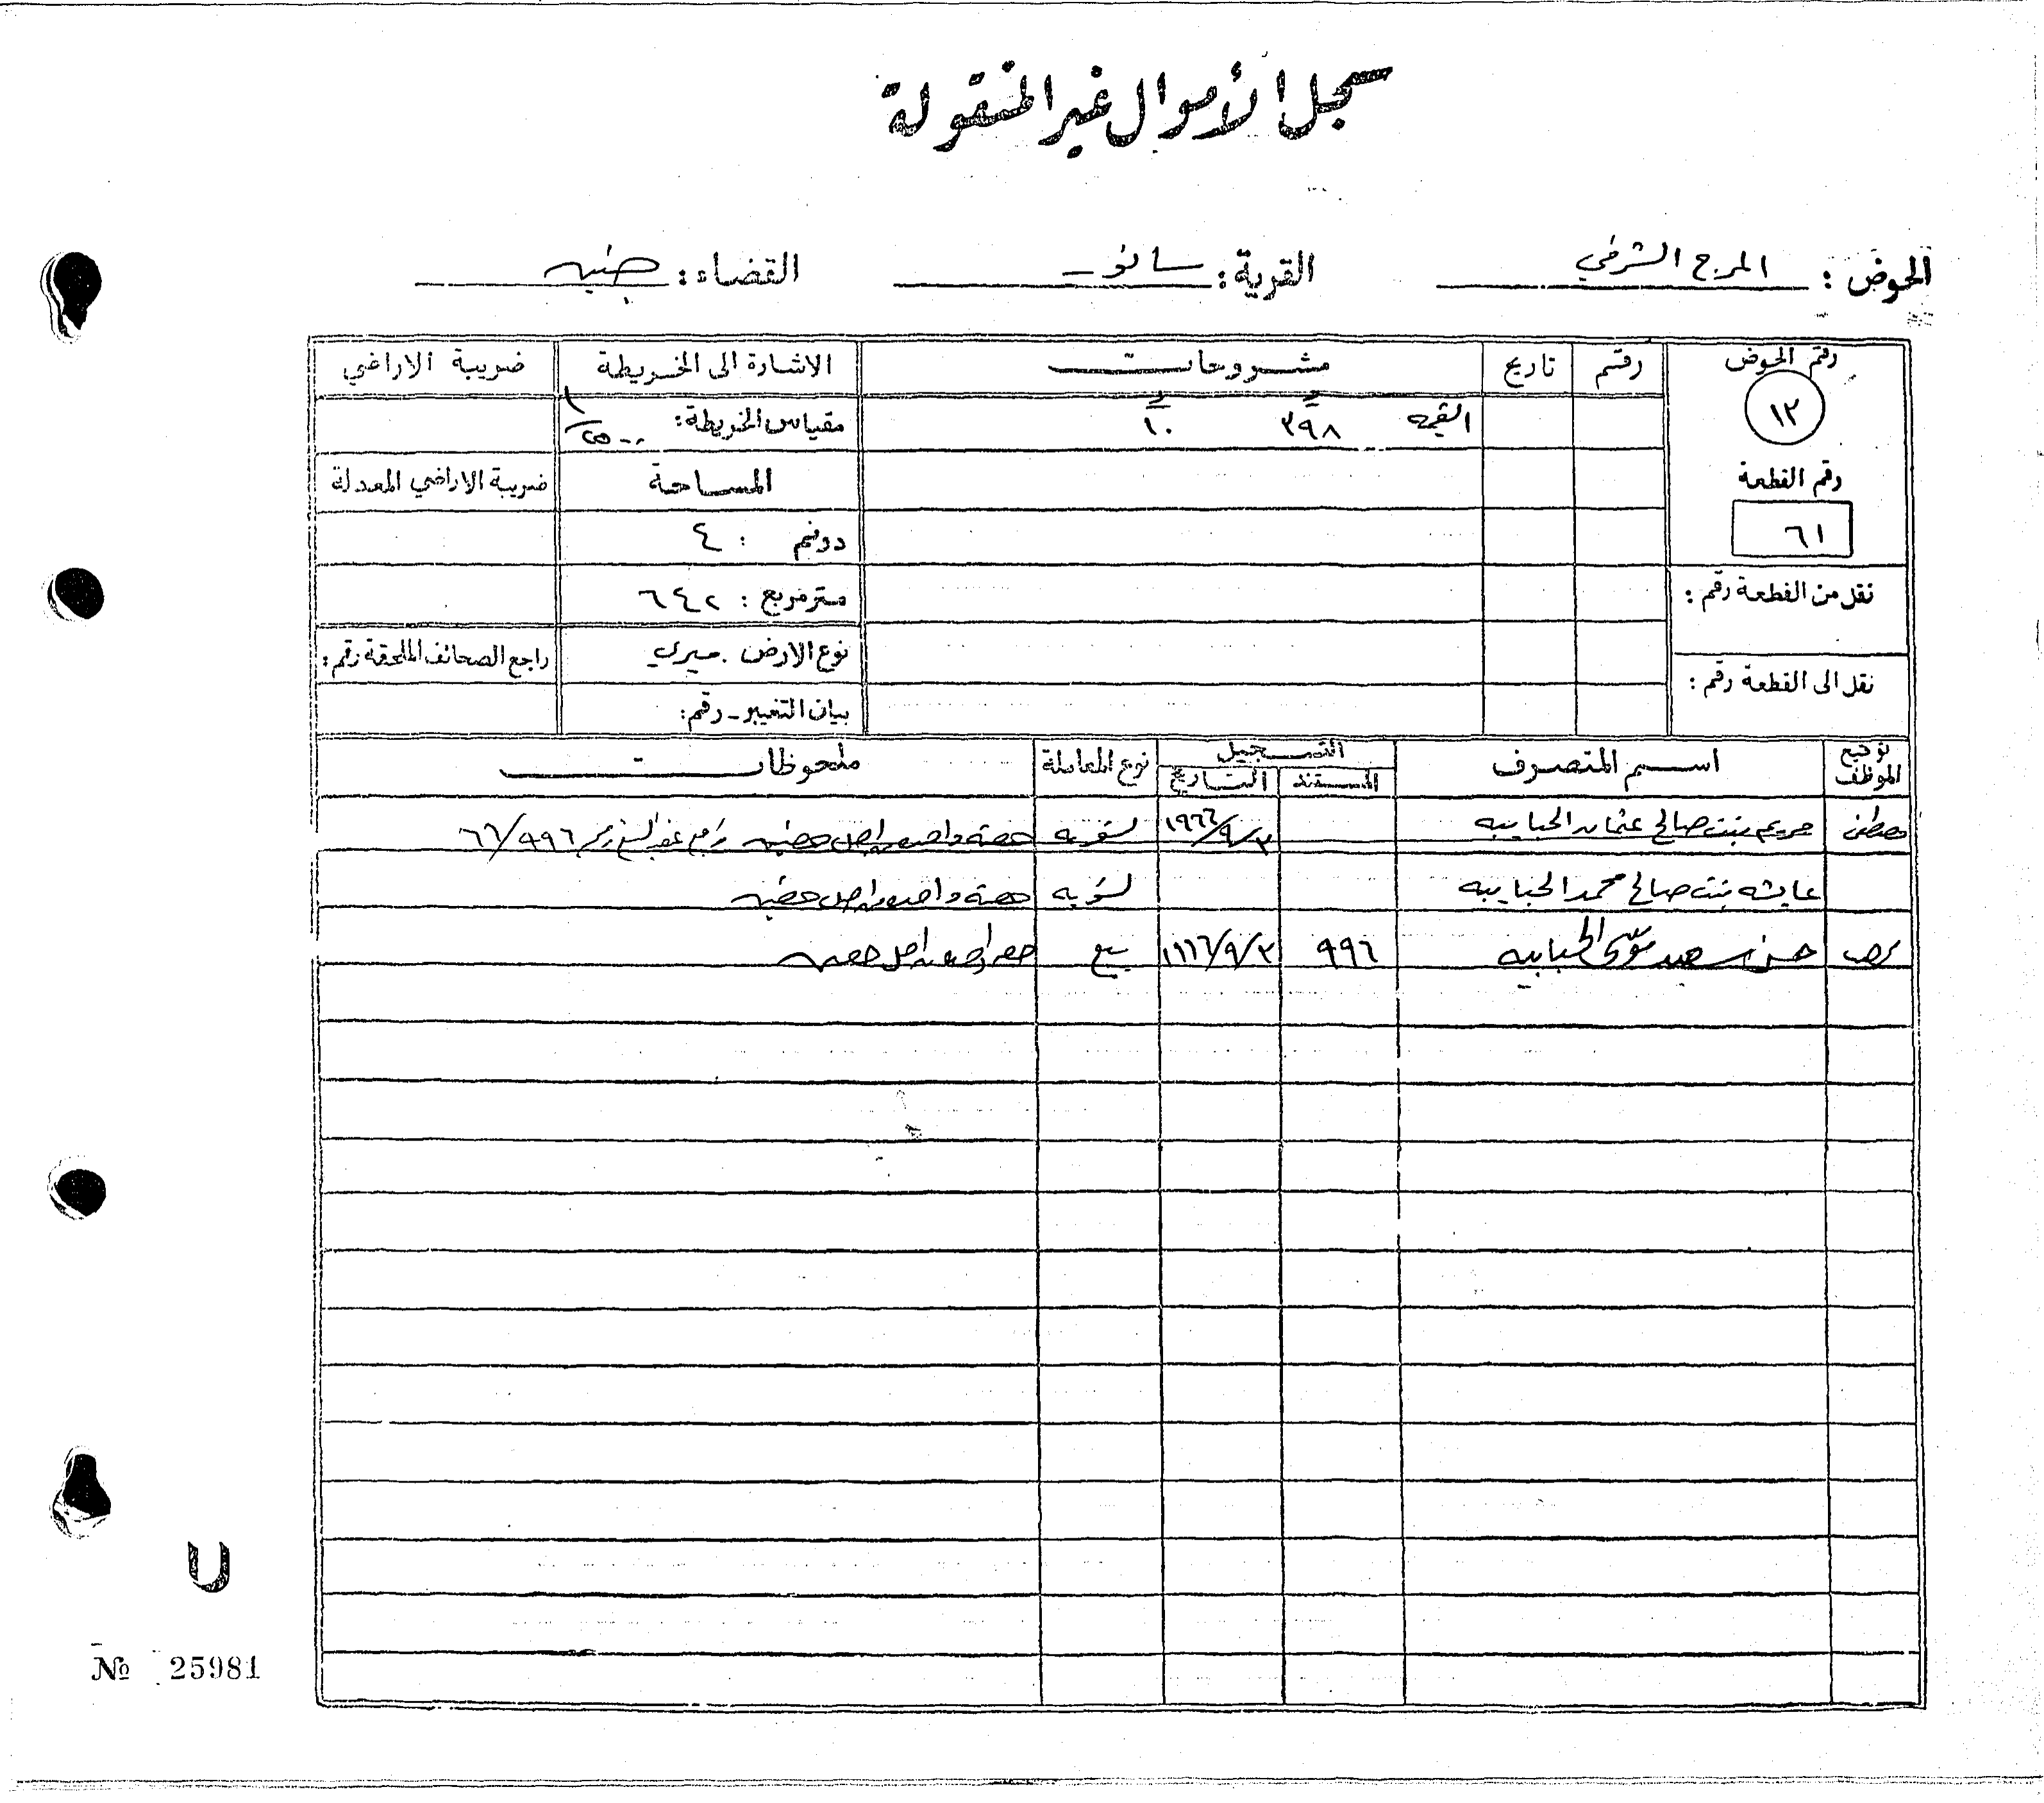 سجل الأموال غير المنقولة
الحوض : المرج الشرقي القرية : سانور القضاء : جنين
رقم الحوض رقم تاريخ مشروحات الاشارة الى الخريطة ضريبة الاراضي
١٢ القيمه ٣٩٨ ١٠ مقياس الخريطة : ١/٢٥٠٠
رقم القطعة المساحة ضريبة الاراضي المعدلة
٦١ دونم : ٤
نقل من القطعة رقم : متر مربع : ٦٤٢
نوع الارض . ميري راجع الصحائف الملحقة رقم :
نقل الى القطعة رقم : بيان التغيير - رقم :
توقيع الموظف اسم المتصرف التسجيل نوع المعاملة ملحوظات
المستند التاريخ
مريم بنت صالح عثمان الحبايبه ١٩٦٦/٩/٣ تسويه حصة واحده من اصل حصتين ٦٦/٩٩٦
عايشه بنت صالح محمد الحبايبه تسويه حصة واحده من اصل حصتين
حسن سعيد موسى الحبايبه ٩٩٦ ١٩٦٦/٩/٣ بيع حصه واحده من اصل حصتين
U
№ 25981